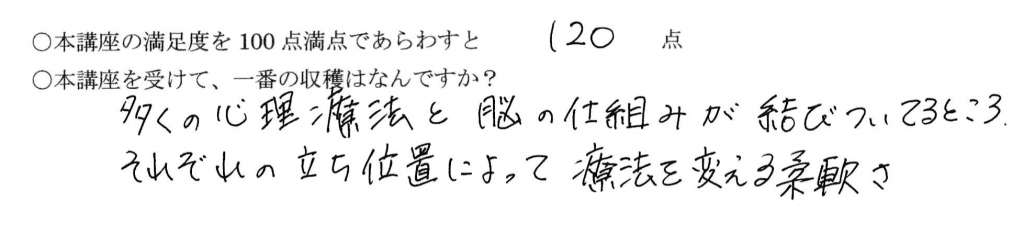 ○本講座の満足度を100点満点であらわすと 120 点
○本講座を受けて、一番の収穫はなんですか？
多くの心理療法と脳の仕組みが結びついてるところ.
それぞれの立ち位置によって療法を変える柔軟さ